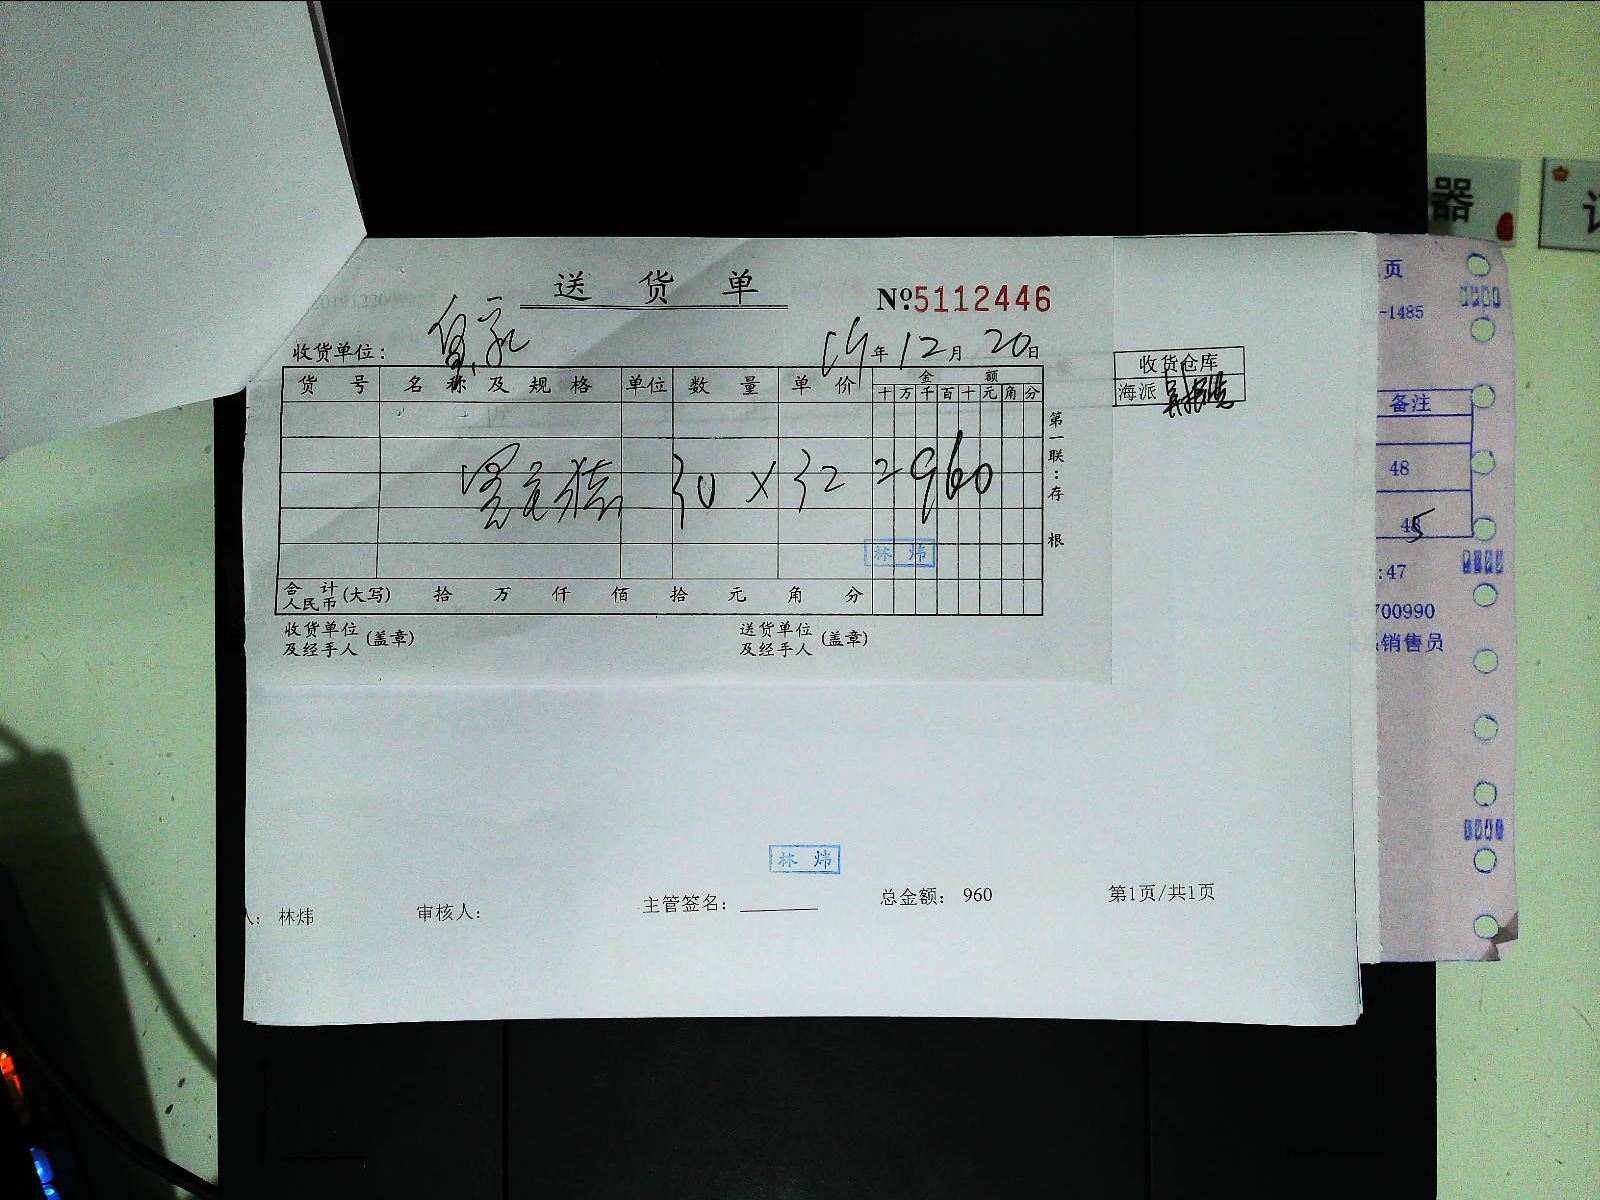 送 货 单
Nº:5112446
收货单位:
19年12月20日
货 号 名 称 及 规 格 单位 数 量 单 价 金 额
十 万 千 百 十 元 角 分
30 X 32 = 960
林 炜
合 计
人民币 (大写) 拾 万 仟 佰 拾 元 角 分
收货单位
及经手人 (盖章)
送货单位
及经手人 (盖章)
第一联:存 根
收货仓库
海派
林 炜
人: 林炜 审核人: 主管签名: 总金额: 960 第1页/共1页
页
-1485
备注
48
48
5
:47
700990
销售员
器